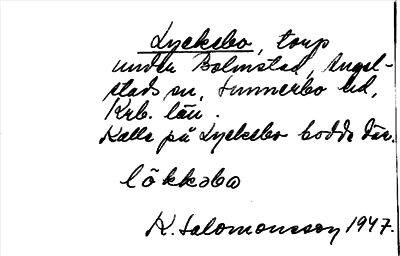 Lyckebo, torp
under Bolmstad, Angel-
stads sn, Sunnerbo hd,
Krb. län.
Kalle på Lyckebo bodde där.
lökkəbω
K. Salomonsson 1947.